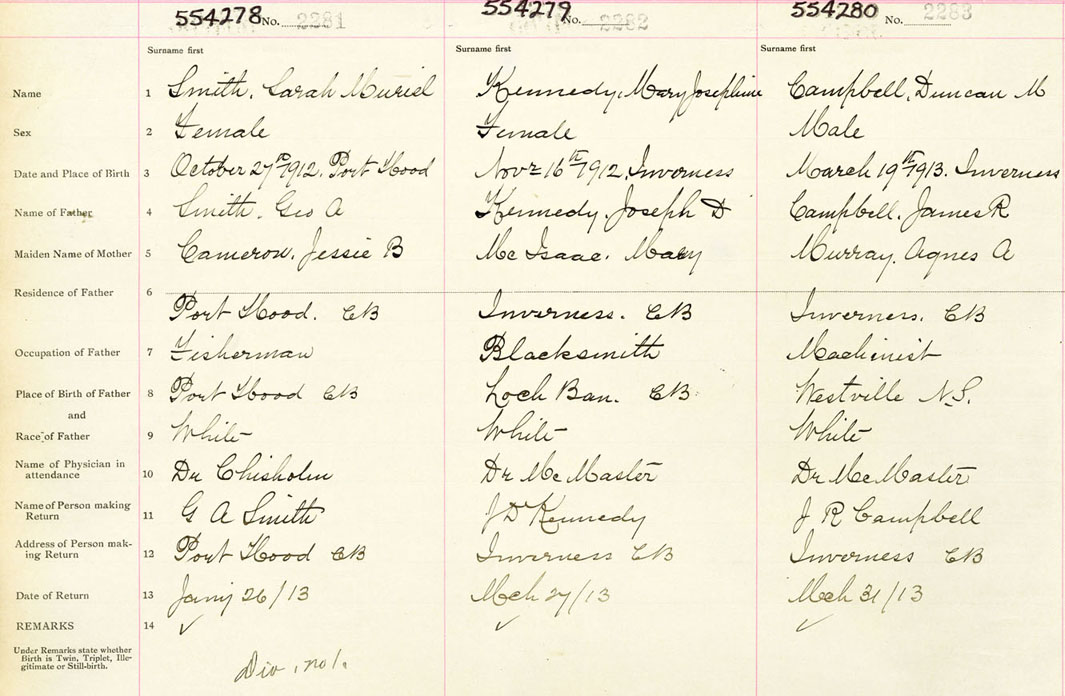 554278 No. 2281 554279 No. 2282 554280 No. 2283
Surname first Surname first Surname first
Name 1 Smith, Sarah Muriel Kennedy, Mary Josephine Campbell, Duncan M
Sex 2 Female Female Male
Date and Place of Birth 3 October 27th 1912. Port Hood Novr 16th 1912. Inverness March 19th 1913. Inverness
Name of Father 4 Smith. Geo A Kennedy. Joseph D Campbell. James R
Maiden Name of Mother 5 Cameron. Jessie B McIsaac. Mary Murray. Agnes A
Residence of Father 6
Port Hood. CB Inverness. CB Inverness. CB
Occupation of Father 7 Fisherman Blacksmith Machinist
Place of Birth of Father 8 Port Hood CB Loch Ban. CB Westville N.S.
and
Race of Father 9 White White White
Name of Physician in
attendance 10 Dr Chisholm Dr McMaster Dr McMaster
Name of Person making
Return 11 G A Smith J D Kennedy J R Campbell
Address of Person mak-
ing Return 12 Port Hood CB Inverness CB Inverness CB
Date of Return 13 Jany 26/13 Mch 27/13 Mch 31/13
REMARKS 14 ✓ ✓ ✓
Under Remarks state whether
Birth is Twin, Triplet, Ille-
gitimate or Still-birth.
Div. no 1.